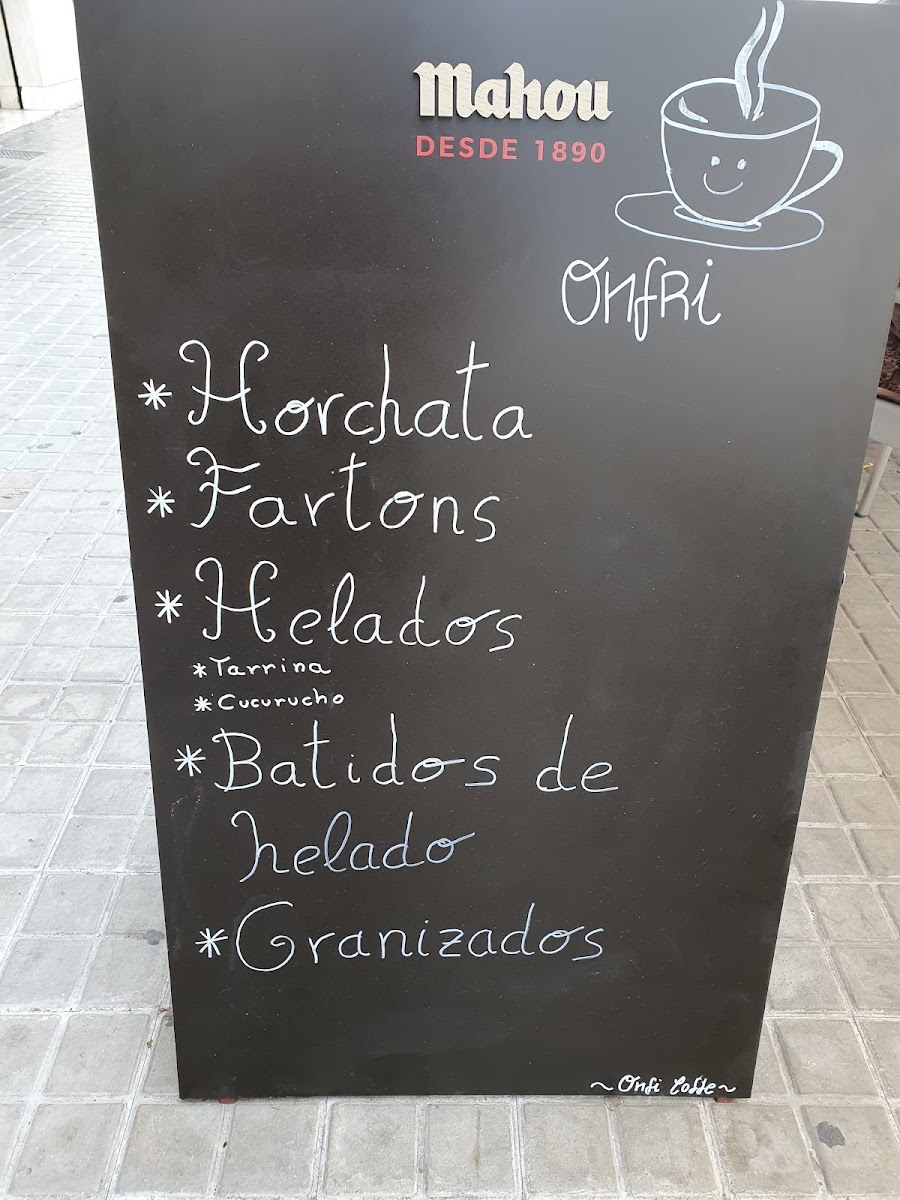 Mahou
DESDE 1890
OnfRi
* Horchata
* Fartons
* Helados
* Tarrina
* Cucurucho
* Batidos de
helado
* Granizados
~ Onfi Coffe ~